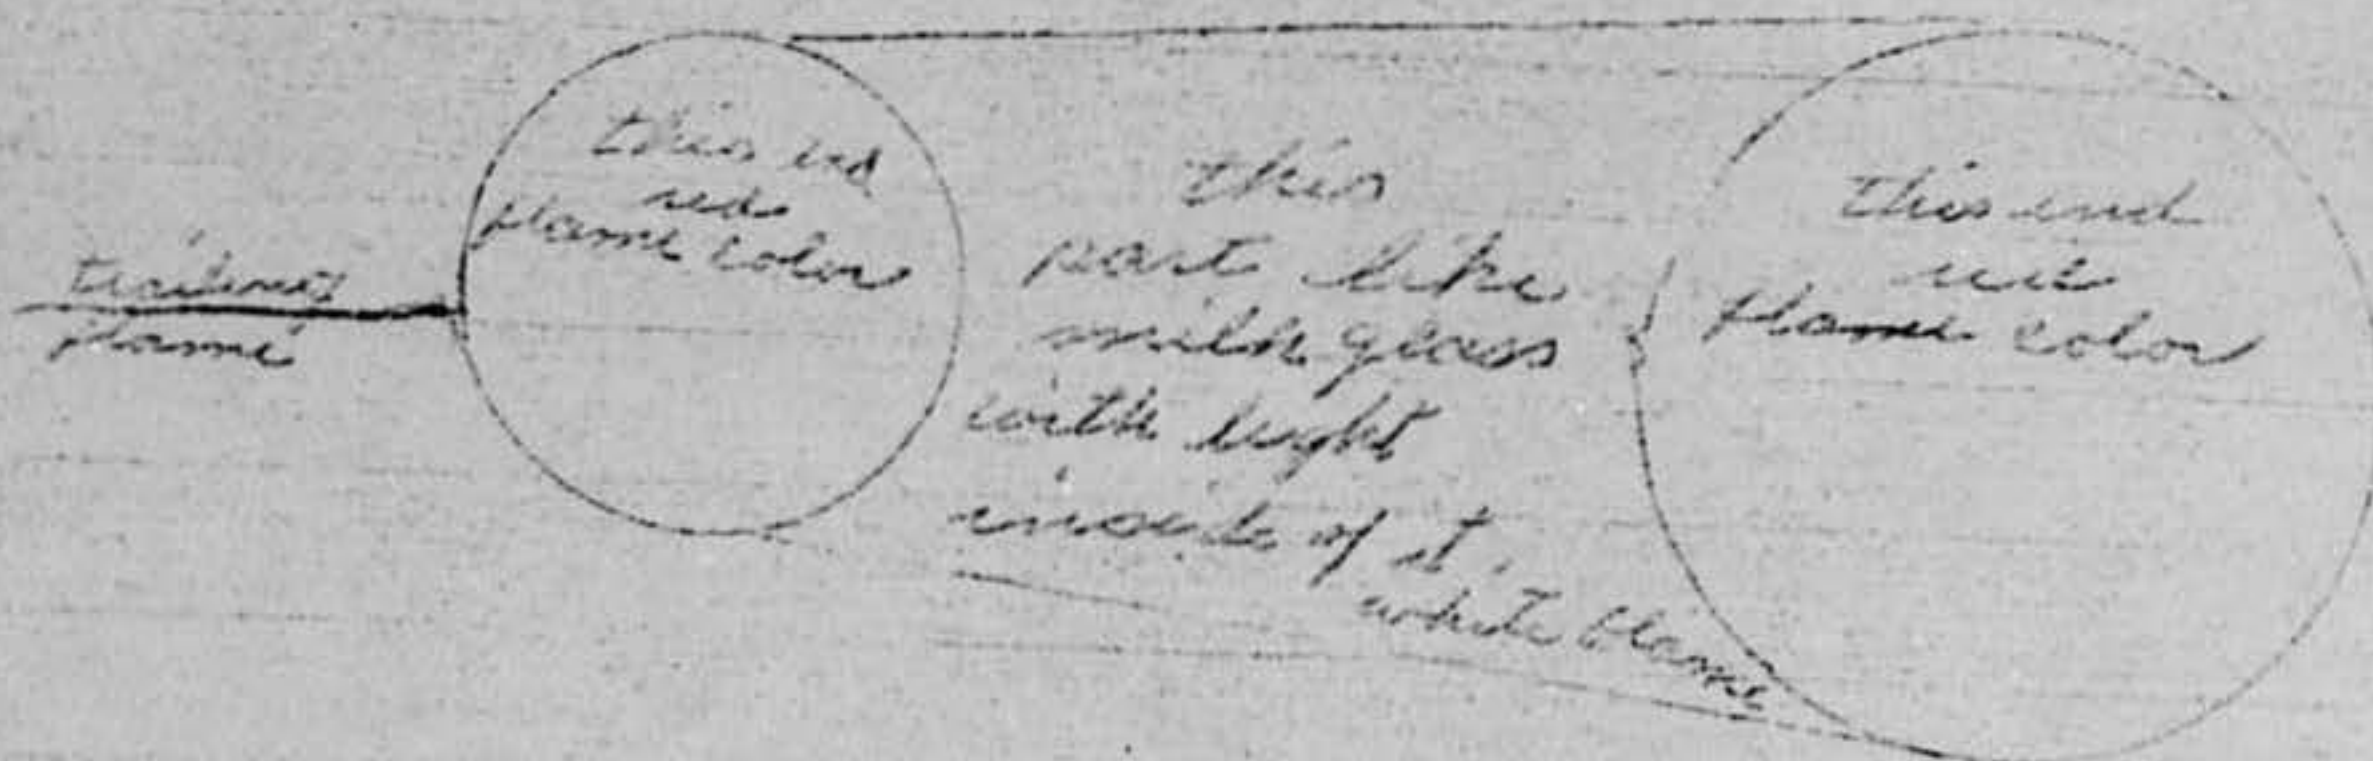 trailing
flame
this end
red
flame color
this
part like
milk glass
with light
inside of it.
white flame
this end
red
flame color